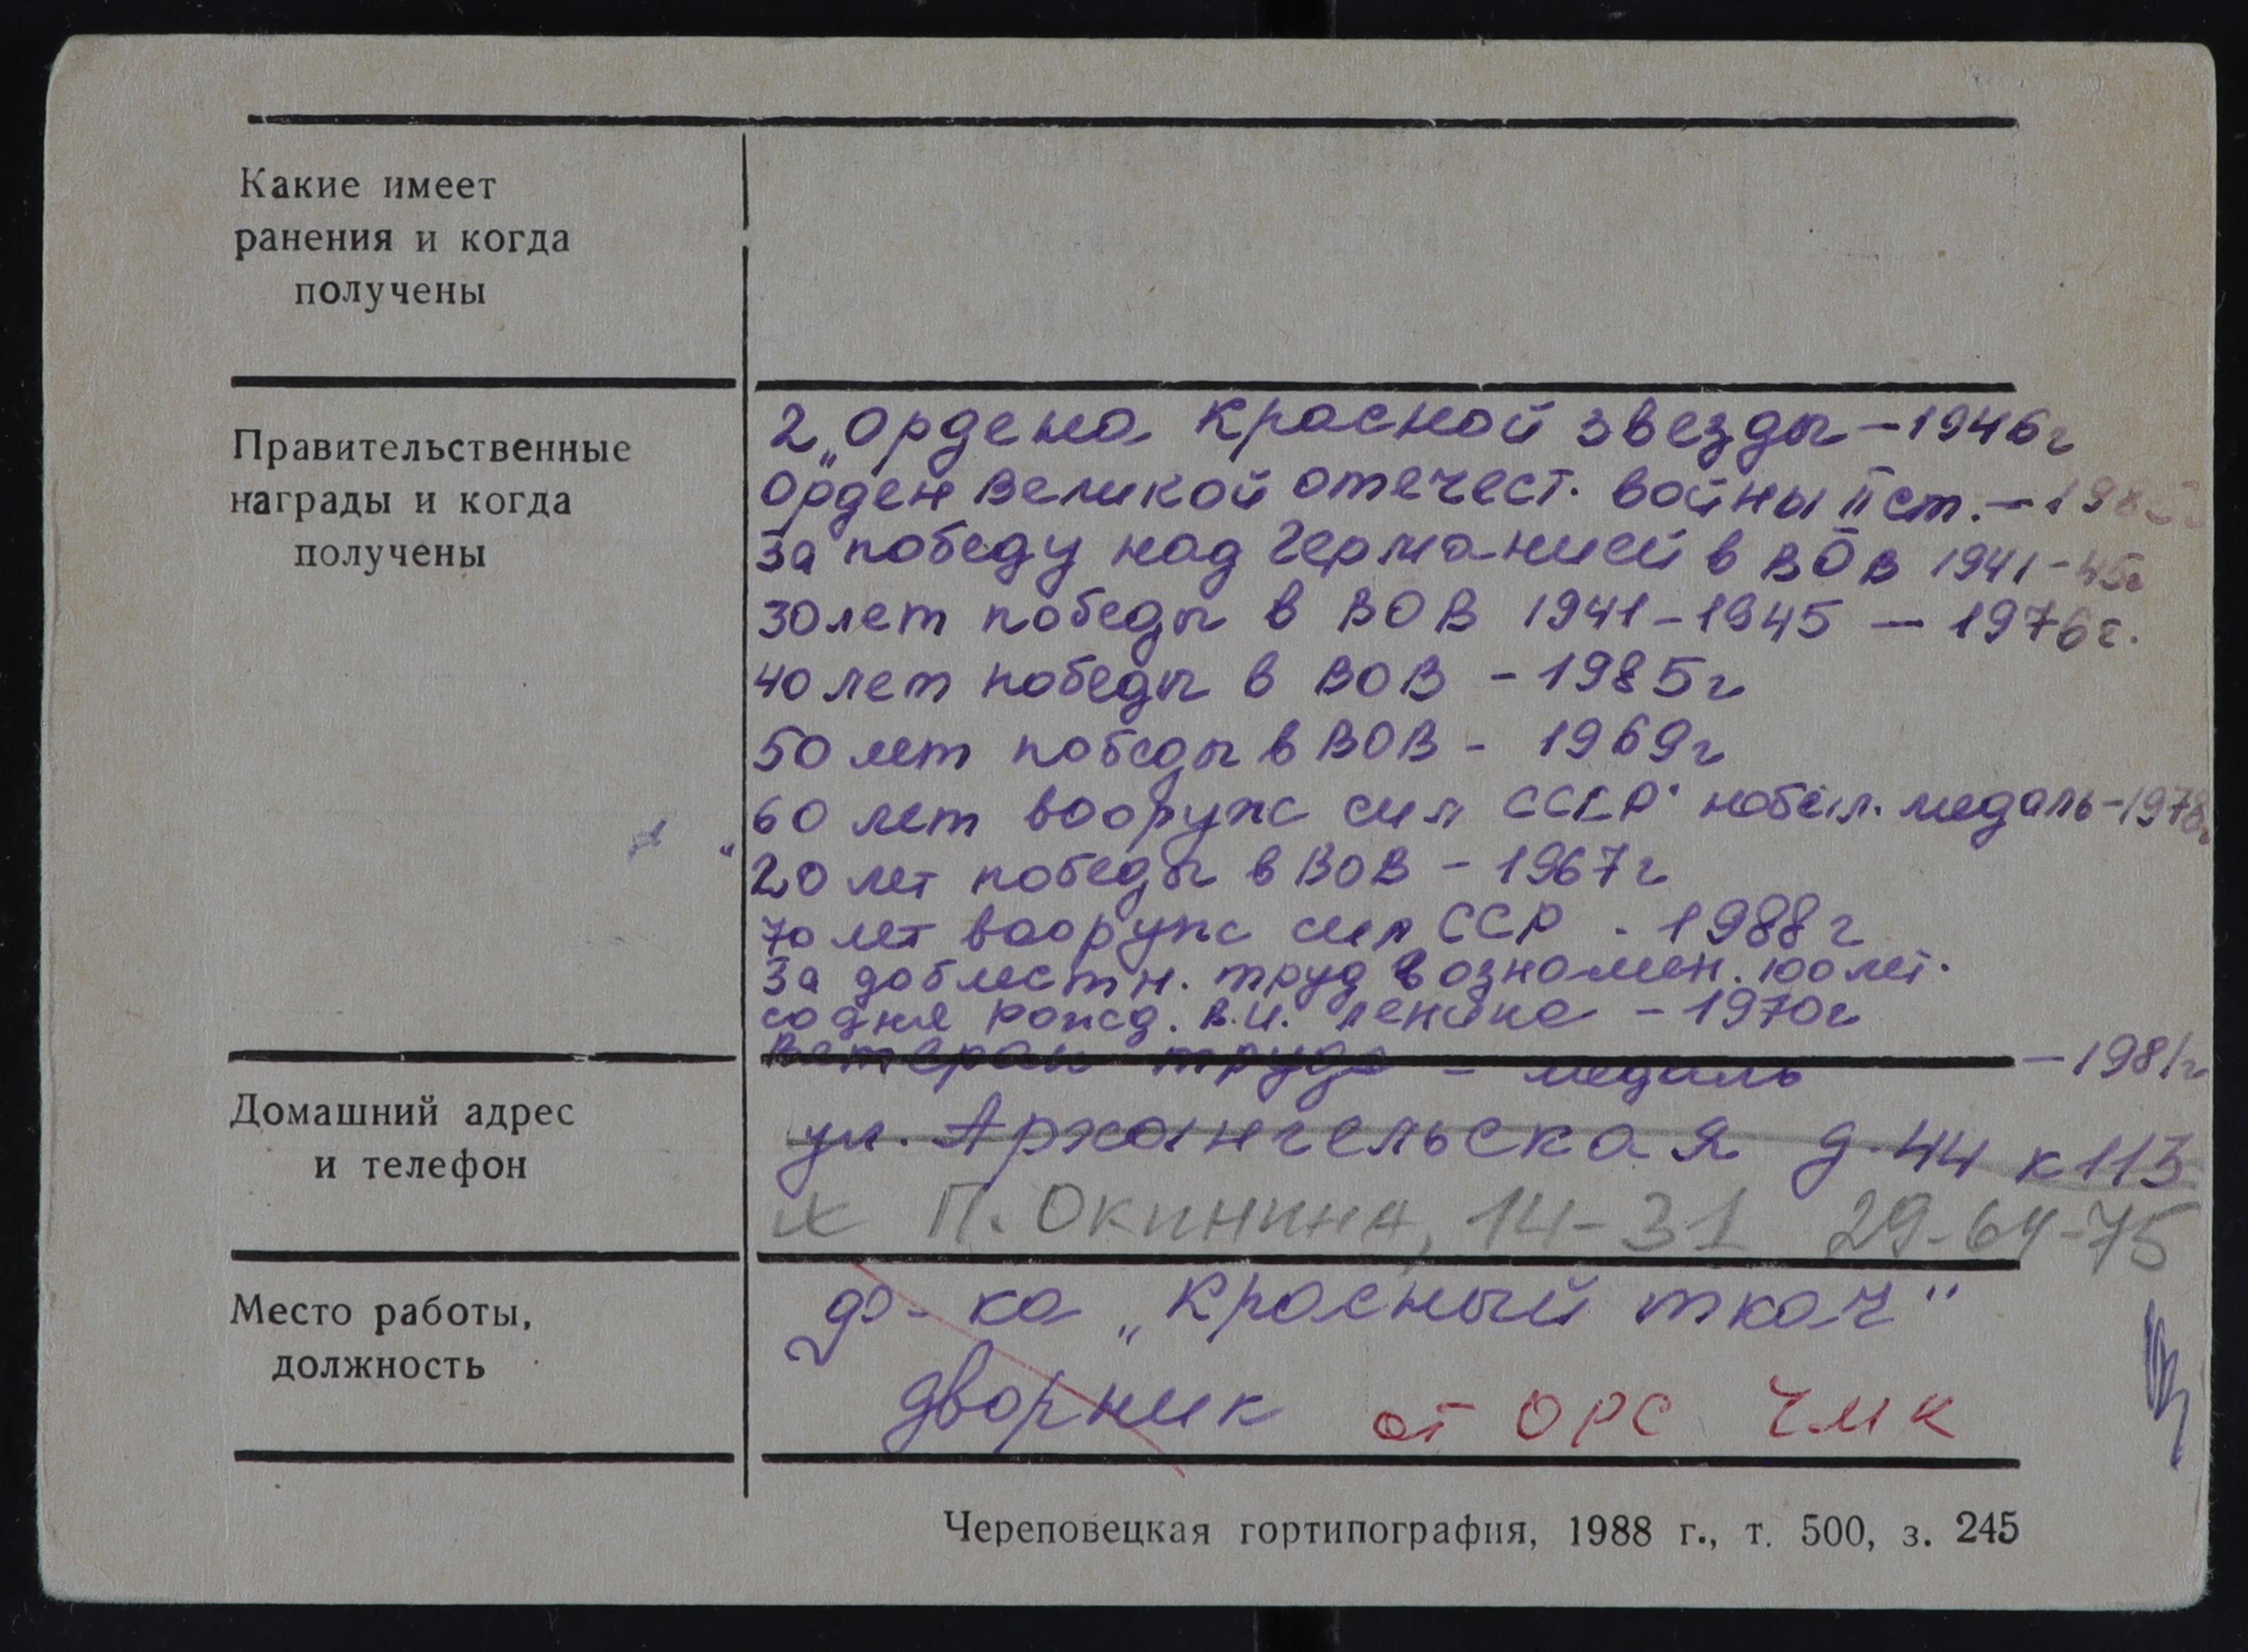 Какие имеет
ранения и когда
получены
Правительственные
награды и когда
получены
2 „Ордена Красной звезды – 1946г
Орден Великой отечест. войны II ст. – 1985
За победу над Германией в ВОВ 1941-45г
30 лет победы в ВОВ 1941-1945 – 1976г.
40 лет победы в ВОВ – 1985г
50 лет победы в ВОВ – 1969г
60 лет вооруж сил СССР юбил. медаль – 1978г
" 20 лет победы в ВОВ – 1967г
70 лет вооруж сил ССР . 1988г
За доблестн. труд в ознамен. 100 лет.
со дня рожд. В.И. Ленина – 1970г
Ветеран труда – медаль – 1981г
Домашний адрес
и телефон
ул. Архангельская д. 44 к 113
х П. Окинина, 14-31 29-64-75
Место работы,
должность
ф-ка „Красный ткач"
дворник от ОРС ЧМК
Череповецкая гортипография, 1988 г., т. 500, з. 245